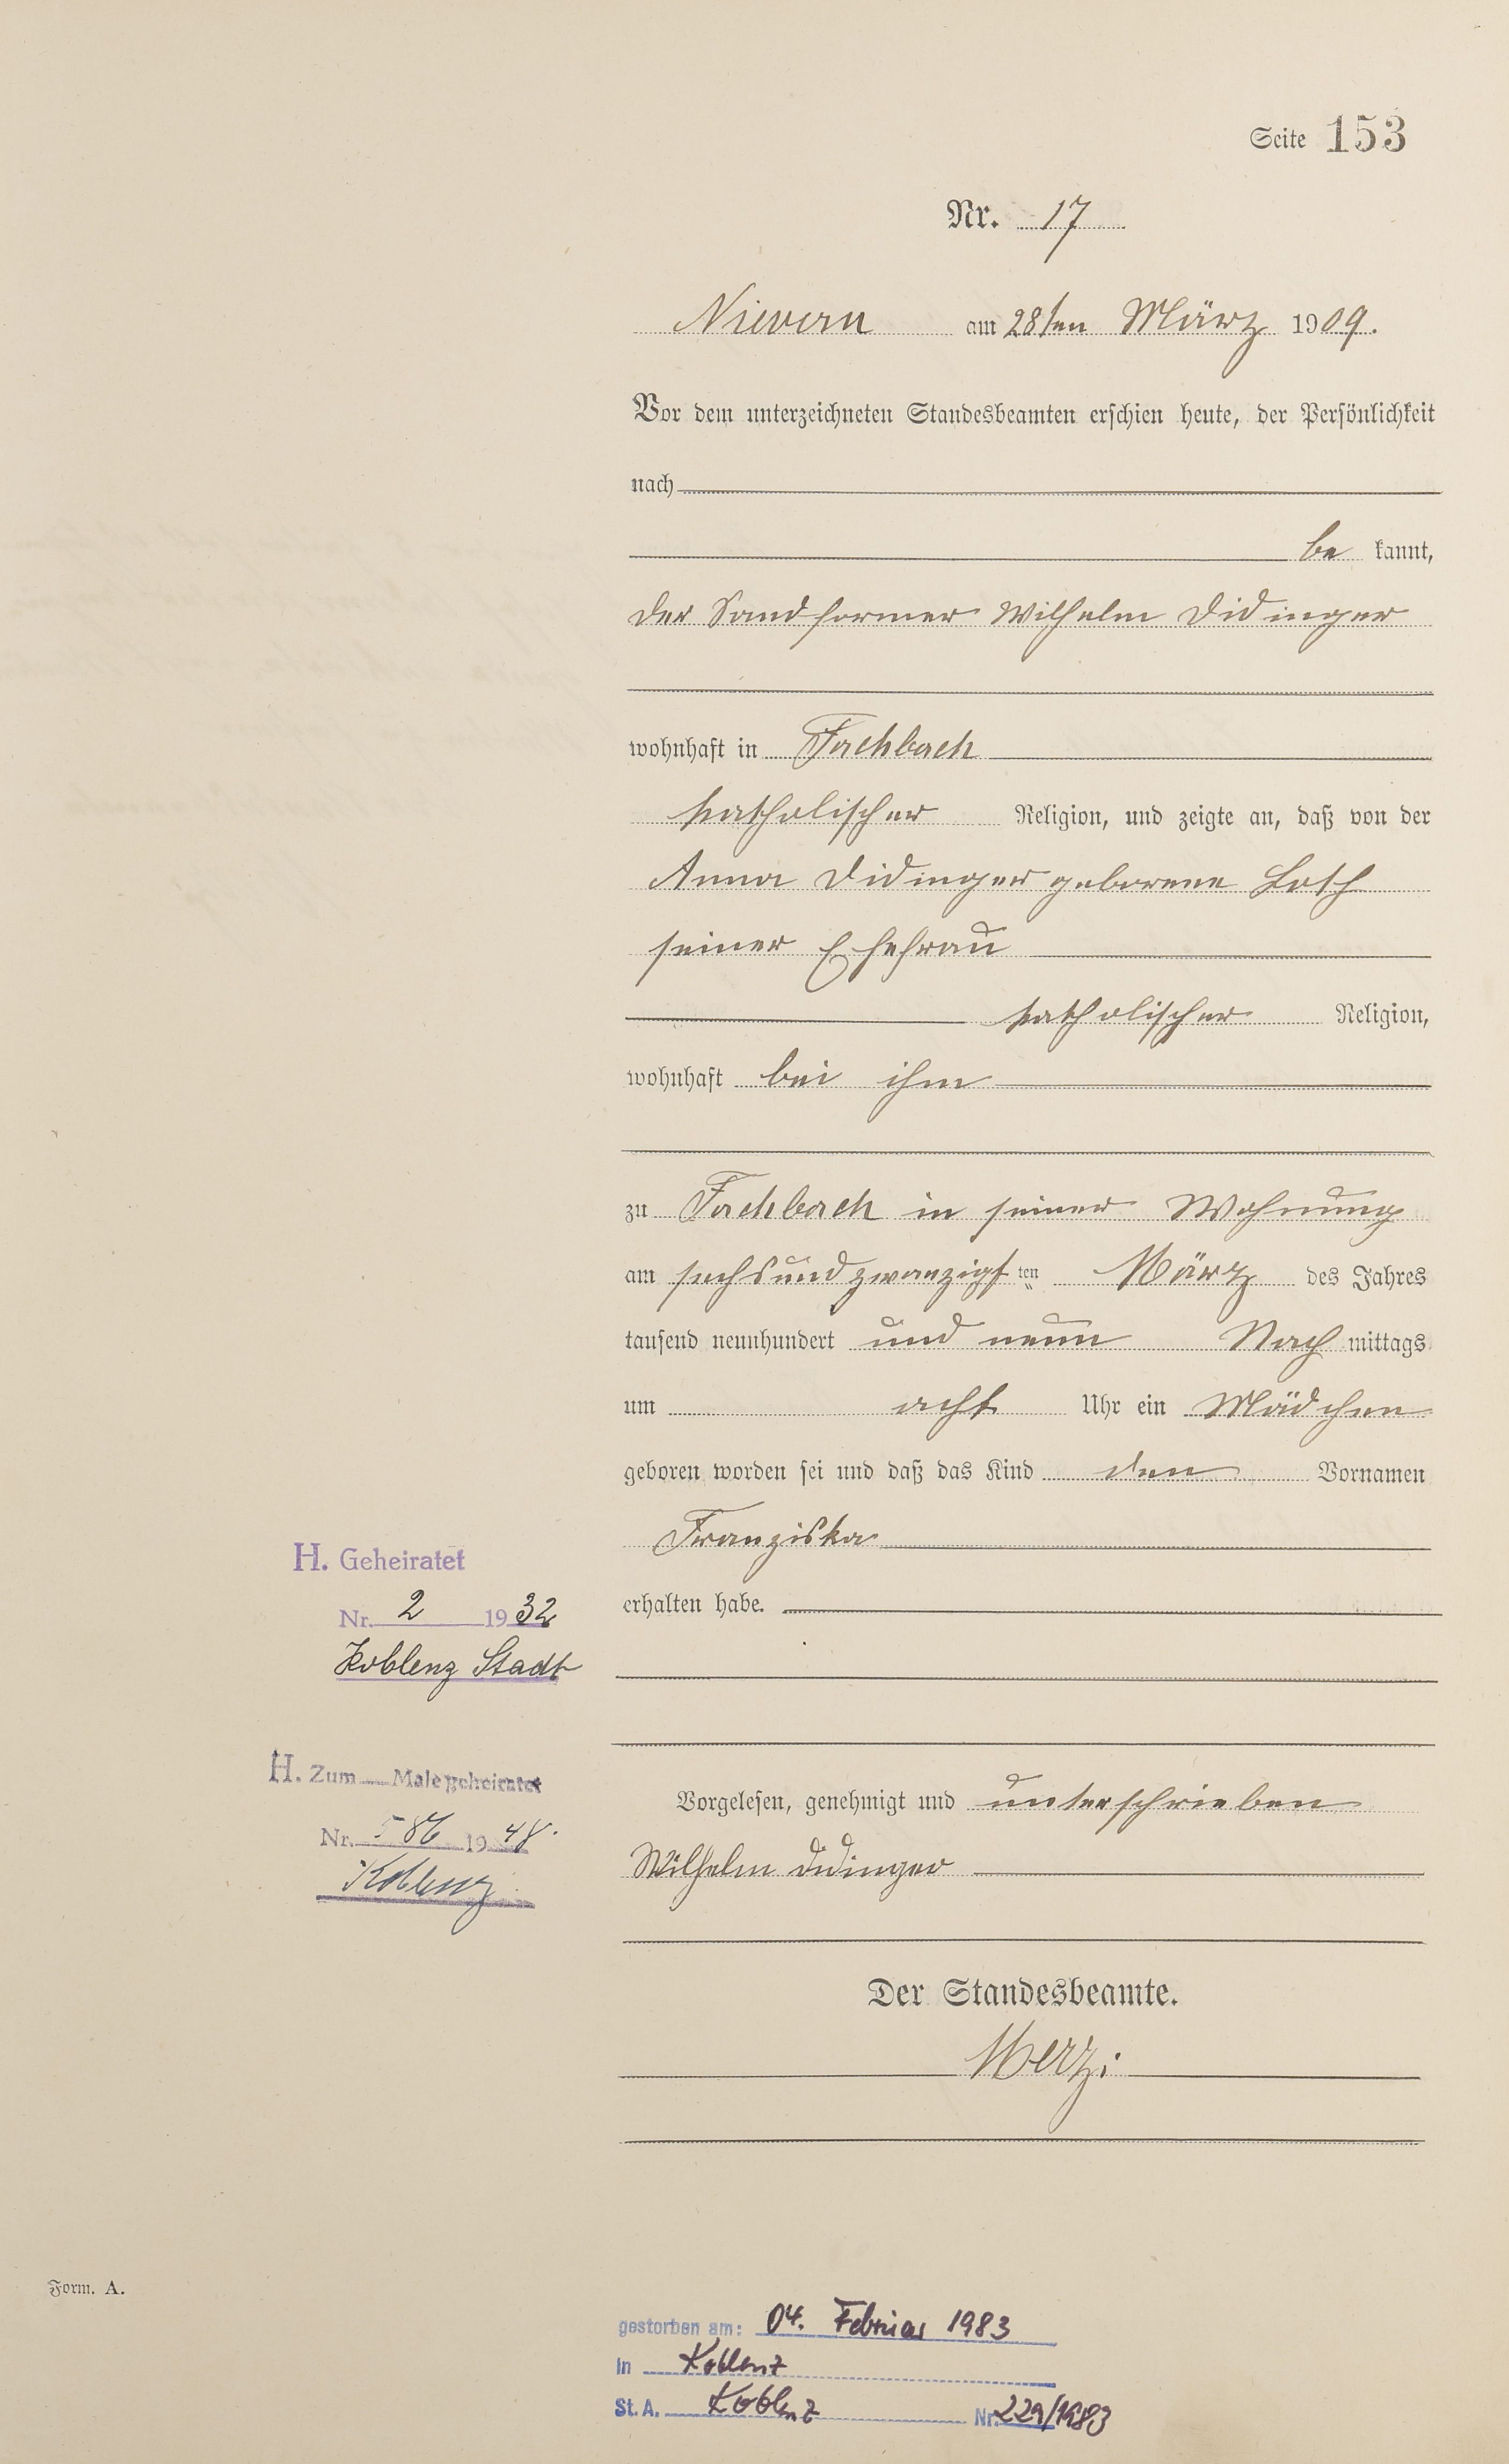 Seite 153
Nr. 17
Nievern am 28ten März 1909.
Vor dem unterzeichneten Standesbeamten erschien heute, der Persönlichkeit
nach
be kannt,
der Sandformer Wilhelm Didinger
wohnhaft in Fachbach
katholischer Religion, und zeigte an, daß von der
Anna Didinger geborene Loth
seiner Ehefrau
katholischer Religion,
wohnhaft bei ihm
zu Fachbach in seiner Wohnung
am sechsundzwanzigsten März des Jahres
tausend neunhundert und neun Nach mittags
um acht Uhr ein Mädchen
geboren worden sei und daß das Kind den Vornamen
Franziska
erhalten habe.
H. Geheiratet
Nr. 2 1932
Koblenz Stadt
H. Zum Male geheiratet
Nr. 586 1948.
Koblenz
Vorgelesen, genehmigt und unterschrieben
Wilhelm Didinger
Der Standesbeamte.
Merz:
Form. A.
gestorben am: 04. Februar 1983
in Koblenz
St. A. Koblenz Nr. 229/1983